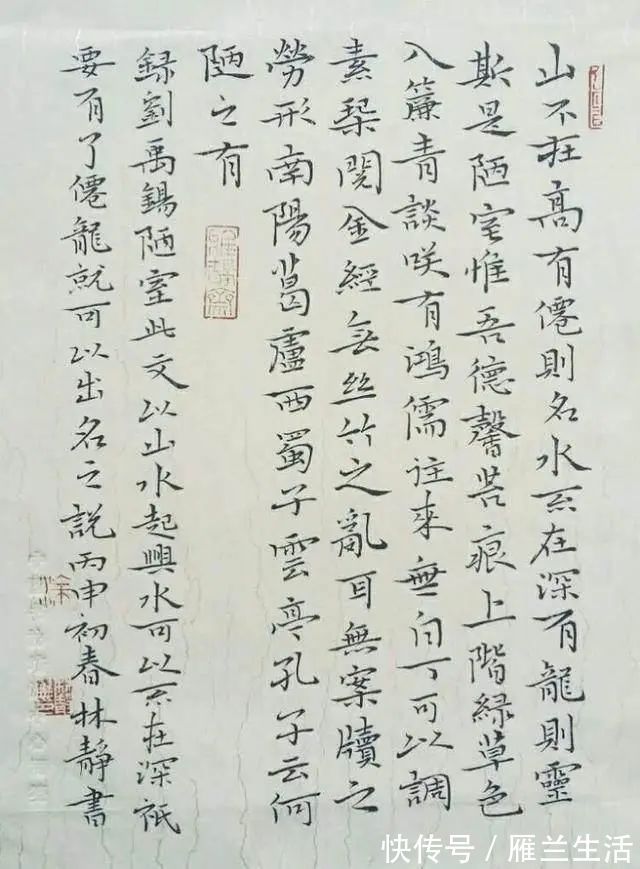 山不在高有僊則名水不在深有龍則靈
斯是陋室惟吾德馨苔痕上階綠草色
入簾青談咲有鴻儒往來無白丁可以調
素琴閱金經無丝竹之亂耳無案牘之
勞形南陽葛廬西蜀子雲亭孔子云何
陋之有
録劉禹錫陋室此文以山水起興水可以不在深祇
要有了僊龍就可以出名之説丙申初春林靜書
快传号/雁兰生活